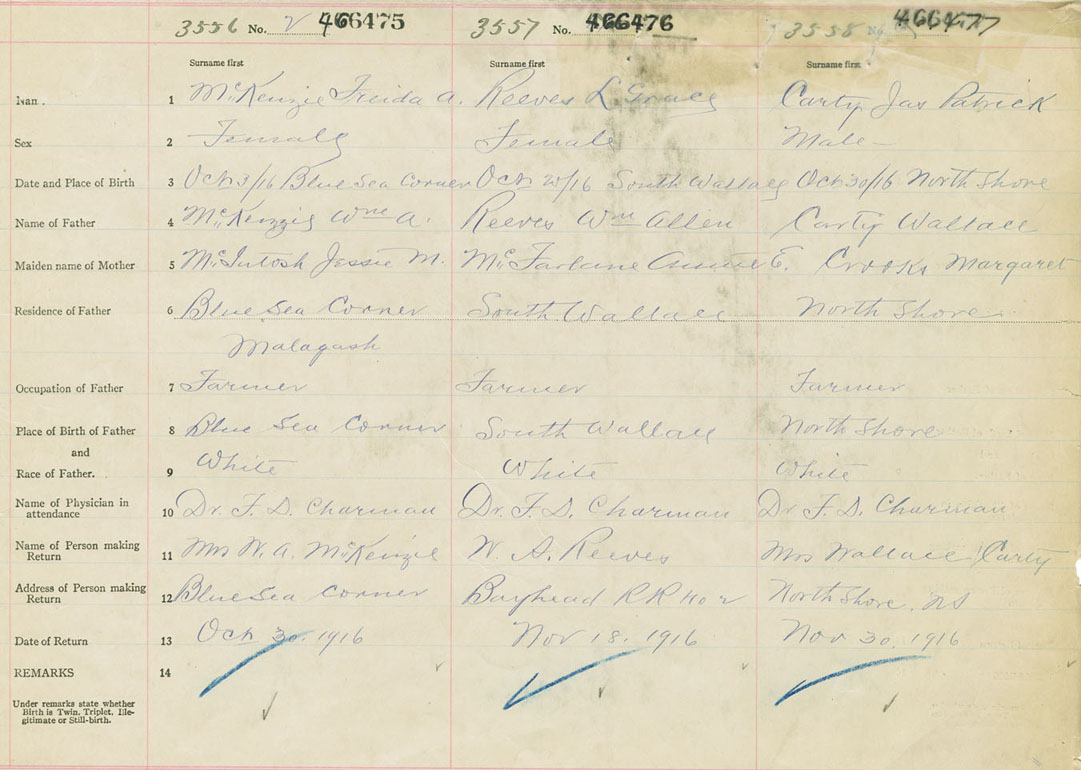 3556 No. 2 466475 3557 No. 466476 3558 No. 466477
Surname first Surname first Surname first
1 McKenzie Freida A. Reeves L. Grace Carty Jas Patrick
Sex 2 Female Female Male
Date and Place of Birth 3 Oct 3/16 Blue Sea Corner Oct 20/16 South Wallace Oct 30/16 North Shore
Name of Father 4 McKenzie Wm A. Reeves Wm Allen Carty Wallace
Maiden name of Mother 5 McIntosh Jessie M. McFarlane Annie E. Crooks Margaret
Residence of Father 6 Blue Sea Corner South Wallace North Shore
Malagash
Occupation of Father 7 Farmer Farmer Farmer
Place of Birth of Father 8 Blue Sea Corner South Wallace North Shore
and
Race of Father. 9 White White White
Name of Physician in
attendance 10 Dr. F. D. Charman Dr. F. D. Charman Dr F. D. Charman
Name of Person making
Return 11 Mrs W. A. McKenzie W. A. Reeves Mrs Wallace Carty
Address of Person making
Return 12 Blue Sea Corner Bayhead RR No 2 North Shore. NS
Date of Return 13 Oct 30. 1916 Nov 18. 1916 Nov 30. 1916
REMARKS 14
Under remarks state whether
Birth is Twin, Triplet, Ille-
gitimate or Still-birth.